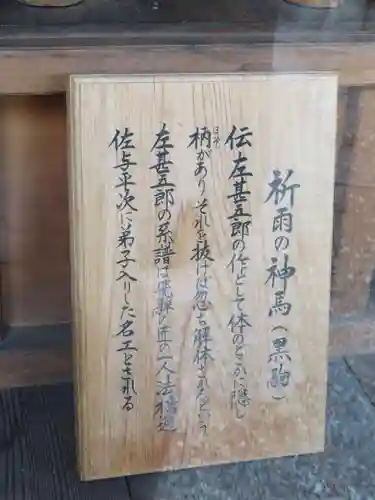 祈雨の神馬(黒駒)
伝左甚五郎の作として体のどこかに隠し
柄があり それを抜けば忽ち解体されるという
ほぞ
左甚五郎の系譜は飛騨の匠の一人法橋
佐与平次に弟子入りした名工とされる